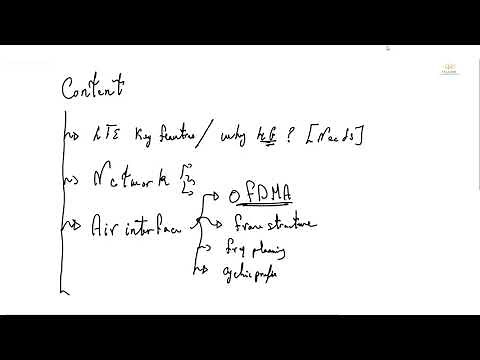 Content
LTE Key features / why 4G ? [Needs]
Network
Air interface
OFDMA
frame structure
frq planning
cyclic prefix